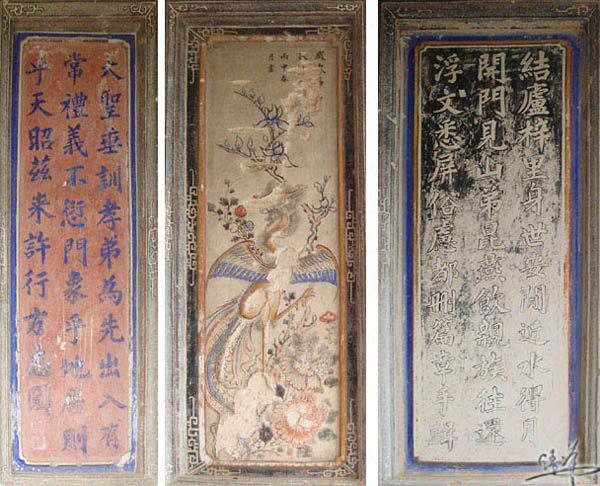 結廬梓里身世安閒近水得月
開門見山弟昆燕飲親族往還
浮文悉屏俗慮都刪篇章手
丙申春
月書
大聖垂訓孝弟為先出入有
常禮義不愆門象乎地則
乎天昭茲来許行方圓